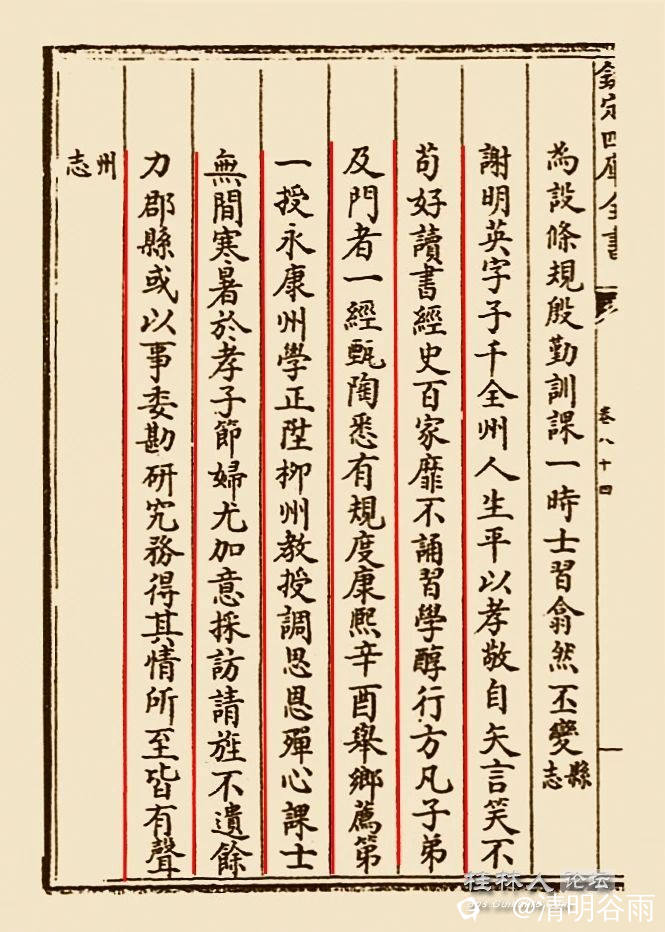 欽定四庫全書
卷八十四
為設條規殷勤訓課一時士習翕然丕變縣志
謝明英字子千全州人生平以孝敬自矢言笑不
苟好讀書經史百家靡不誦習學醇行方凡子弟
及門者一經甄陶悉有規度康熙辛酉舉鄉薦第
一授永康州學正陞柳州教授調思恩殫心課士
無間寒暑於孝子節婦尤加意採訪請旌不遺餘
力郡縣或以事委勘研究務得其情所至皆有聲
州志
桂林人论坛
@清明谷雨